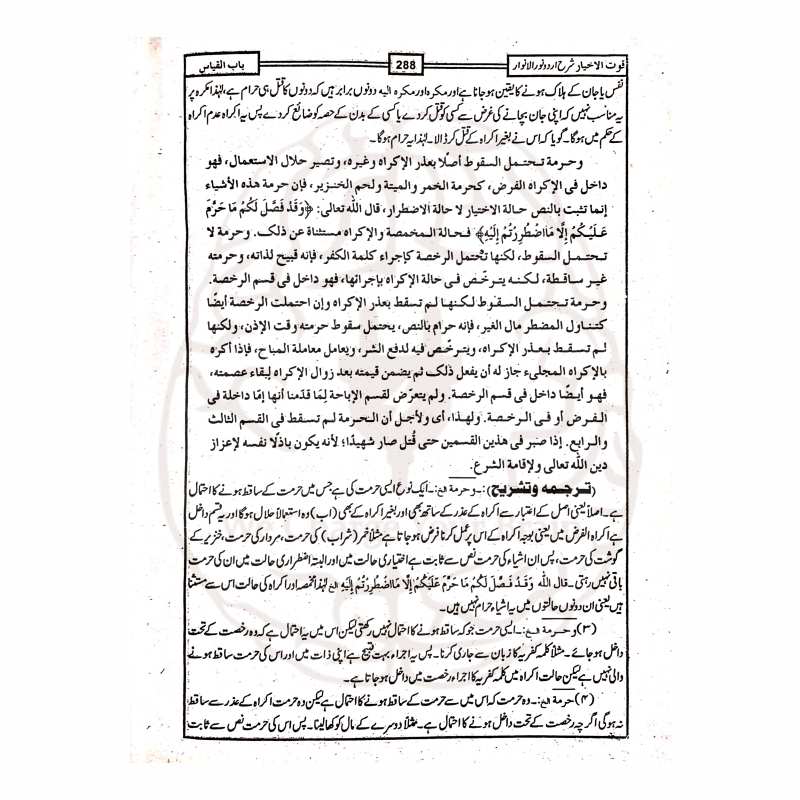 قوت الاخیار شرح اردو نور الانوار 288 باب القیاس
نفس یا جان کے ہلاک ہونے کا یقین ہو جاتا ہے اور مکرَہ اور مکرہ الیہ دونوں برابر ہیں کہ دونوں کا قتل ہی حرام ہے، لہٰذا مکرہ پر
یہ مناسب نہیں کہ اپنی جان بچانے کی غرض سے کسی کو قتل کر دے یا کسی کے بدن کے حصہ کو ضائع کر دے پس یہ اکراہ عدم اکراہ
کے حکم میں ہوگا۔ گویا کہ اس نے بغیر اکراہ کے قتل کر ڈالا۔ لہٰذا یہ حرام ہوگا۔
وحرمة تحتمل السقوط أصلًا بعذر الإكراه وغيره، وتصير حلال الاستعمال، فهو
داخل فى الإكراه الفرض، كحرمة الخمر والميتة ولحم الخنزير، فإن حرمة هذه الأشياء
إنما تثبت بالنص حالة الاختيار لا حالة الاضطرار، قال الله تعالى: ﴿وَقَدْ فَصَّلَ لَكُمْ مَا حَرَّمَ
عَلَيْكُمْ إِلَّا مَا اضْطُرِرْتُمْ إِلَيْهِ﴾ فحالة المخمصة والإكراه مستثناة عن ذلك. وحرمة لا
تحتمل السقوط، لكنها تحتمل الرخصة كإجراء كلمة الكفر، فإنه قبيح لذاته، وحرمته
غير ساقطة، لكنه يترخّص فى حالة الإكراه بإجرائها، فهو داخل فى قسم الرخصة.
وحرمة تحتمل السقوط لكنها لم تسقط بعذر الإكراه وإن احتملت الرخصة أيضًا
كتناول المضطر مال الغير، فإنه حرام بالنص، يحتمل سقوط حرمته وقت الإذن، ولكنها
لم تسقط بعذر الإكراه، ويترخّص فيه لدفع الشر، ويعامل معاملة المباح، فإذا أكره
بالإكراه الملجىء جاز له أن يفعل ذلك ثم يضمن قيمته بعد زوال الإكراه لبقاء عصمته،
فهو أيضًا داخل فى قسم الرخصة. ولم يتعرّض لقسم الإباحة لِمَا قدّمنا أنها إمّا داخلة فى
الفرض أو فى الرخصة. ولهذا، أى ولأجل أن الحرمة لم تسقط فى القسم الثالث
والرابع. إذا صبر فى هذين القسمين حتى قُتل صار شهيدًا؛ لأنه يكون باذلًا نفسه لإعزاز
دين الله تعالى ولإقامة الشرع.
(ترجمہ وتشریح):۔ وحرمة الخ:۔ ایک نوع ایسی حرمت کی ہے جس میں حرمت کے ساقط ہونے کا احتمال
ہے۔ اصلاً یعنی اصل کے اعتبار سے اکراہ کے عذر کے ساتھ بھی اور بغیر اکراہ کے بھی (اب) وہ استعمالاً حلال ہوگا اور یہ قسم داخل
ہے اکراہ الفرض میں یعنی بوجہ اکراہ کے اس پر عمل کرنا فرض ہو جاتا ہے مثلاً خمر (شراب) کی حرمت، مردار کی حرمت، خنزیر کے
گوشت کی حرمت، پس ان اشیاء کی حرمت نص سے ثابت ہے اختیاری حالت میں اور البتہ اضطراری حالت میں ان کی حرمت
باقی نہیں رہتی۔ قال الله وَقَدْ فَصَّلَ لَكُمْ مَا حَرَّمَ عَلَيْكُمْ إِلَّا مَا اضْطُرِرْتُمْ إِلَيْهِ الخ لہٰذا مخمصہ اور اکراہ کی حالت اس سے مستثنا
ہیں یعنی ان دونوں حالتوں میں یہ اشیاء حرام نہیں ہیں۔
(۳) وحرمة الخ:۔ ایسی حرمت جو کہ ساقط ہونے کا احتمال نہیں رکھتی لیکن اس میں یہ احتمال ہے کہ وہ رخصت کے تحت
داخل ہو جائے۔ مثلاً کلمہ کفریہ کا زبان سے جاری کرنا۔ پس یہ اجراء بہت قبیح ہے اپنی ذات میں اور اس کی حرمت ساقط ہونے
والی نہیں ہے لیکن حالت اکراہ میں کلمہ کفریہ کا اجراء رخصت میں داخل ہو جاتا ہے۔
(۴) حرمة الخ:۔ وہ حرمت کہ اس میں سے حرمت کے ساقط ہونے کا احتمال ہے لیکن وہ حرمت اکراہ کے عذر سے ساقط
نہ ہوگی اگرچہ رخصت کے تحت داخل ہونے کا احتمال ہے۔ مثلاً دوسرے کے مال کو کھا لینا۔ پس اس کی حرمت نص سے ثابت